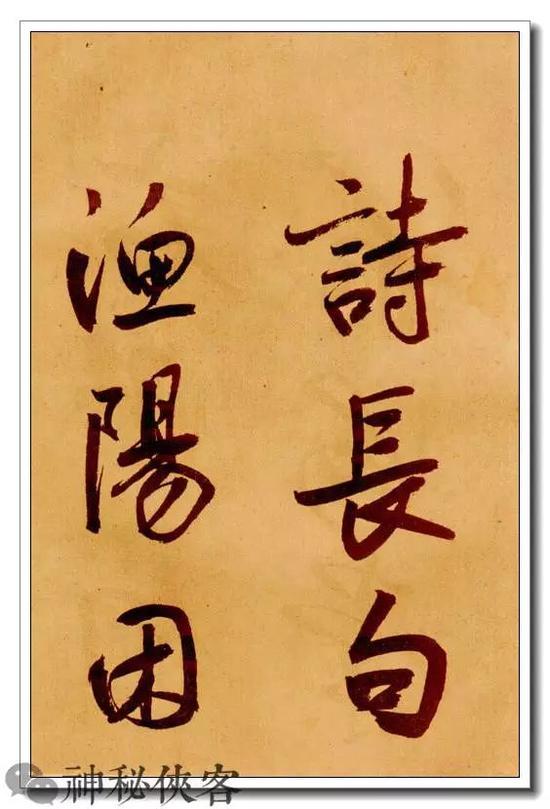 詩長句
漁陽困
神秘俠客